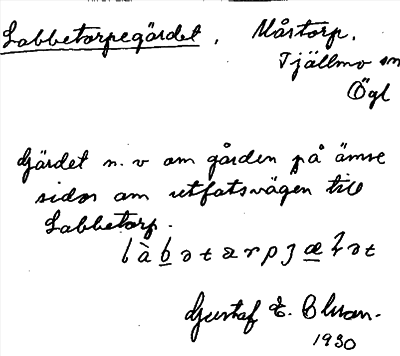 Labbetorpegärdet, Mårtorp.
Tjällmo sn
Ögl
Gärdet n. v om gården på ömse
sidor om utfatsvägen till
Labbetorp.
Gustaf E.
1930